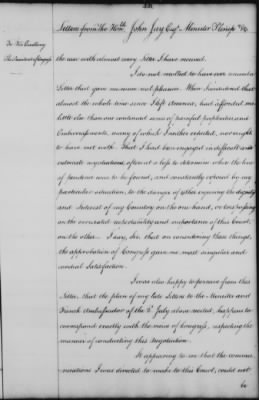 Letters from The Honble John Jay Esqr Minister Plenipo &c
To His Excellency
The President of Congress
the case with almost every letter I have received.
I do not recollect to have ever received a
letter that gave me more real pleasure. When I considered that
almost the whole time since I left America, had afforded me
little else than one continued series of painful perplexities and
Embarrassments, many of which I neither expected, nor ought
to have met with. That I had been engaged in difficult and
intricate negotiations, often at a loss to determine where the line
of prudence was to be found, and constantly exposed by my
particular situation, to the danger of either injuring the dignity
and Interest of my Country on the one hand, or trespassing
on the overrated respectability and importance of this Court,
on the other. I say, Sir that on considering these things,
the approbation of Congress gave me most singular and
cordial Satisfaction.
I was also happy to perceive from this
letter, that the plan of my late letters to the Minister and
French Ambassador of the 2d July above recited, happens to
correspond exactly with the views of Congress, respecting the
manner of conducting this Negotiation.
It appearing to me that the commu-
nications I was directed to make to this Court, could not
be